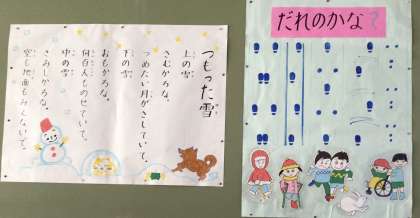 つもった雪
上の雪
さむかろな。
つめたい月がさしていて。
下の雪
おもかろな。
何百人ものせていて。
中の雪
さみしかろな。
空も地面もみえないで。
だれのかな？